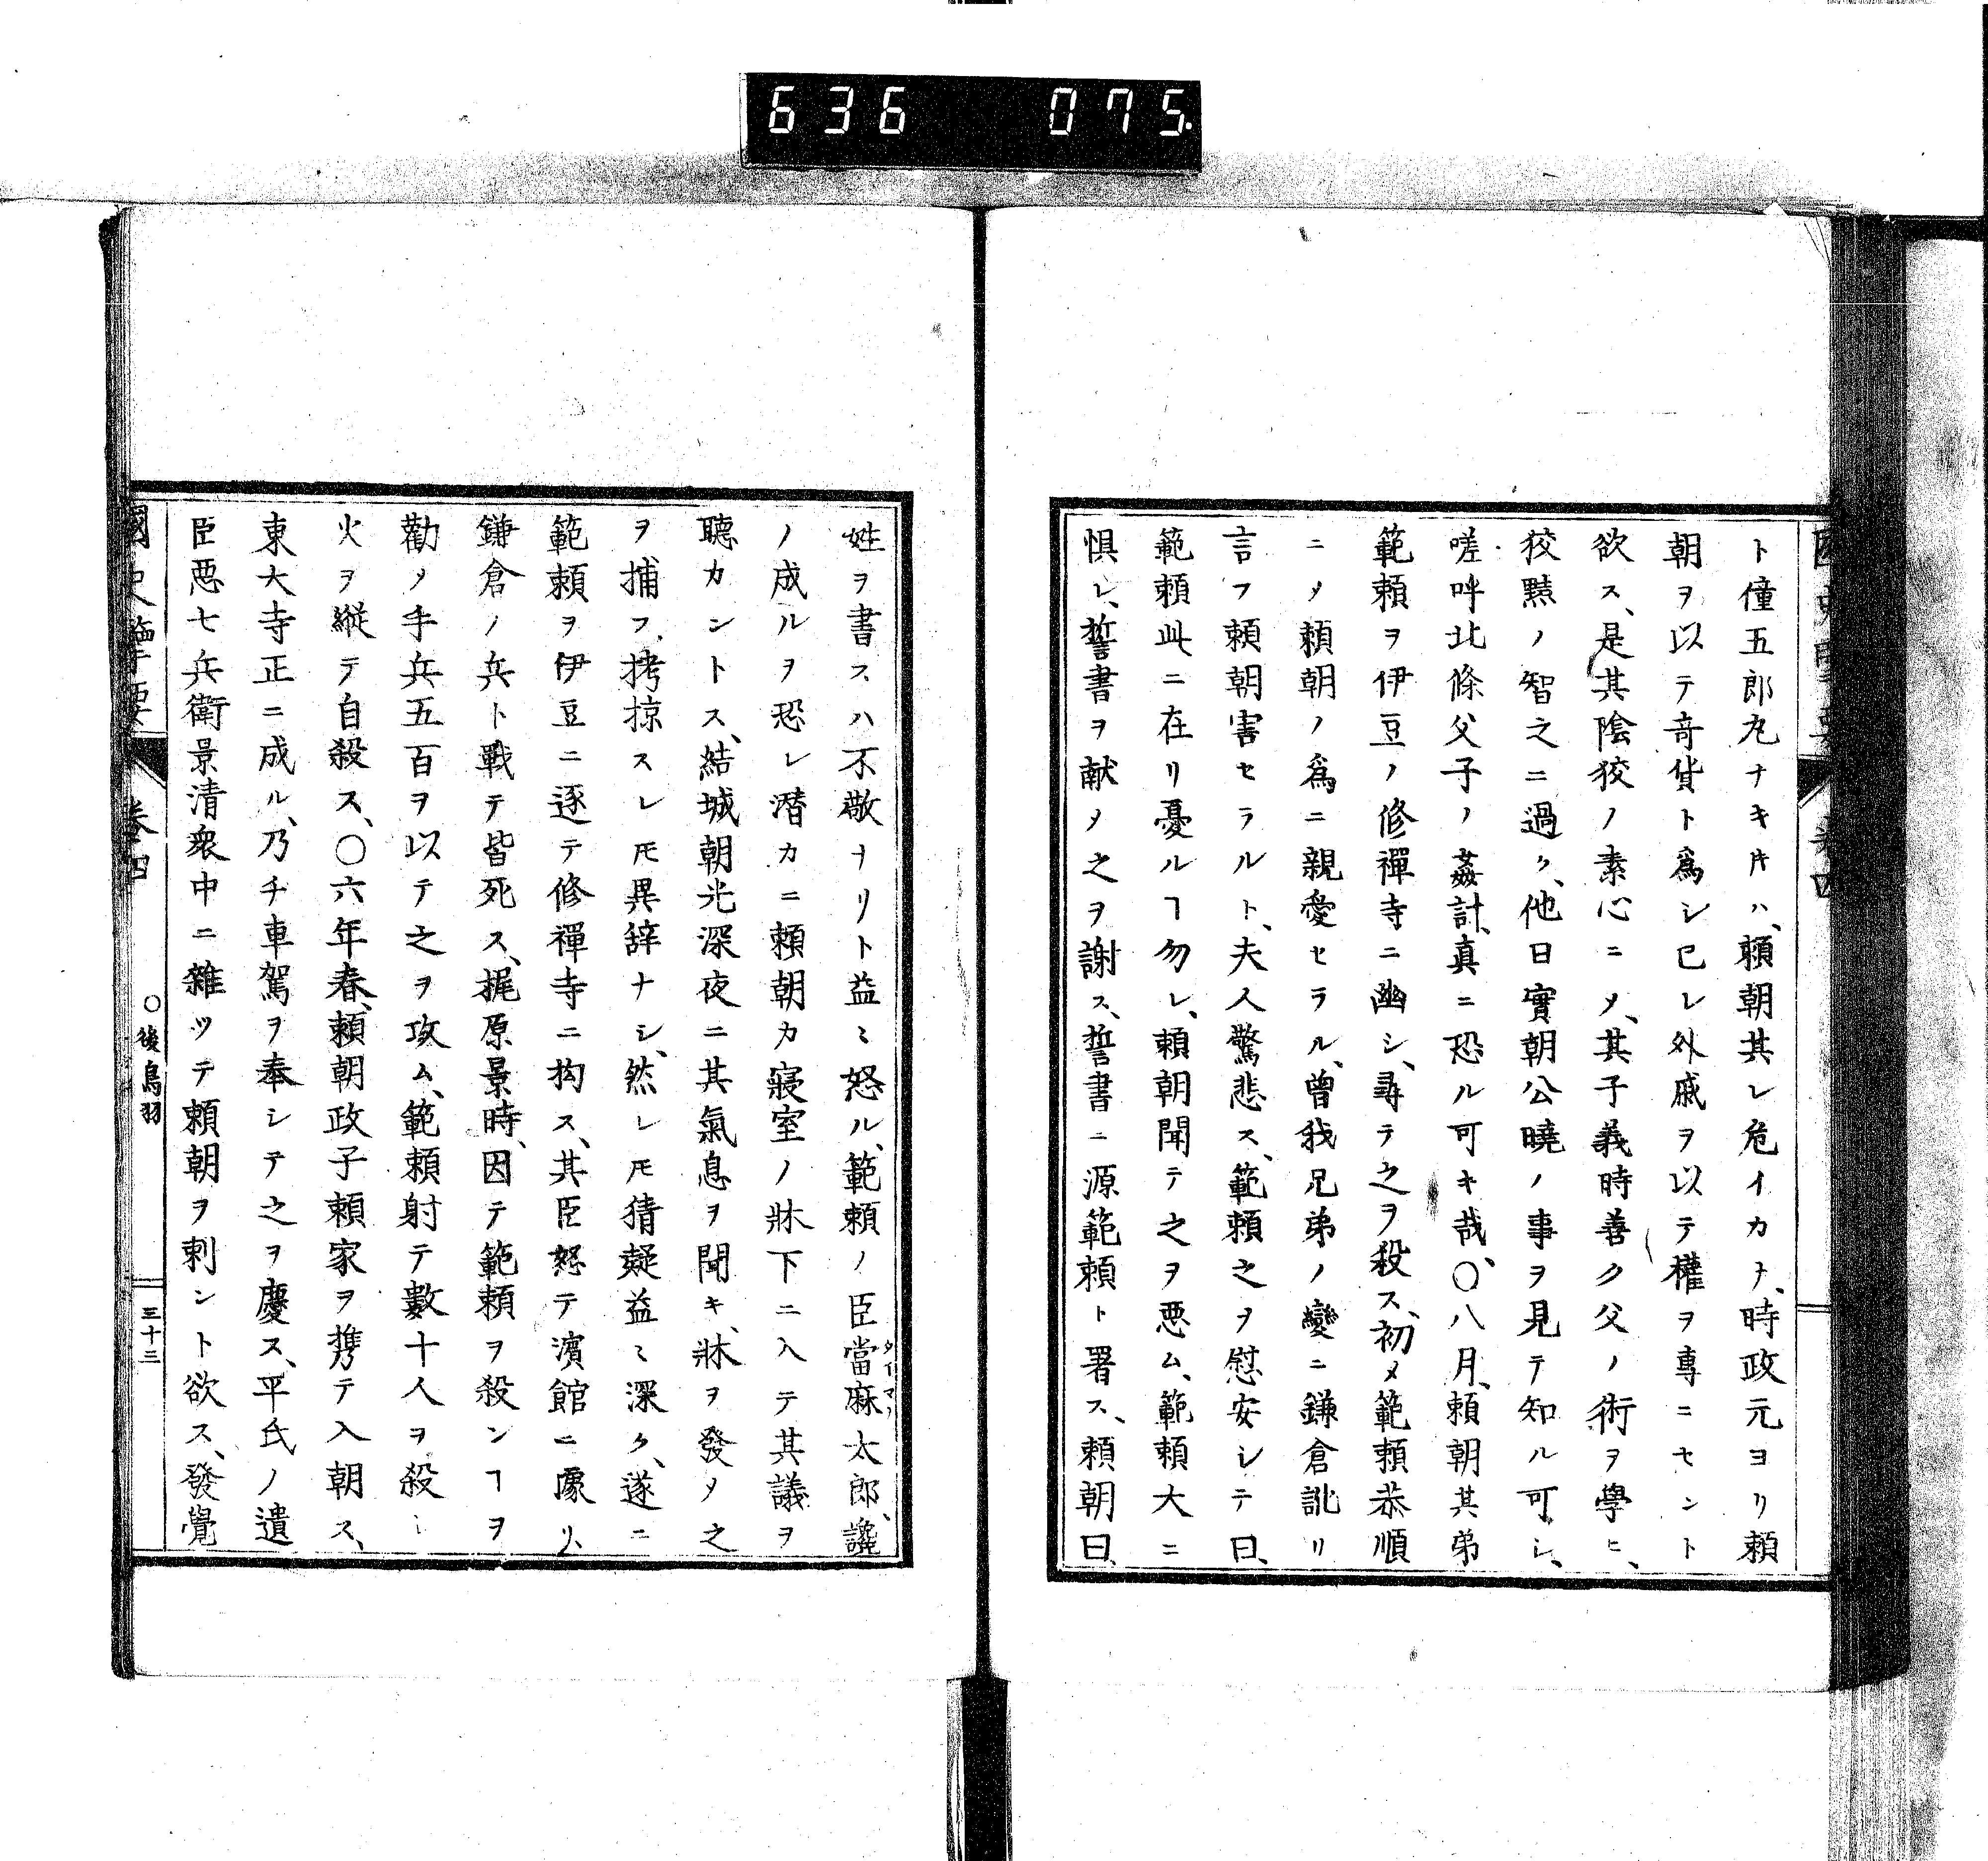 636 075.
ト僮五郎丸ナキ𪜈ハ、頼朝其レ危イカナ、時政元ヨリ頼
朝ヲ以テ竒貨ト爲シ已レ外戚ヲ以テ權ヲ專ニセント
欲ス、是其陰狡ノ素心ニメ、其子義時善ク父ノ術ヲ學ヒ、
狡黠ノ智之ニ過ク、他日實朝公曉ノ事ヲ見テ知ル可シ、
嗟呼北條父子ノ姦計、真ニ恐ル可キ哉、〇八月、頼朝其弟
範頼ヲ伊豆ノ修禪寺ニ幽シ、尋テ之ヲ殺ス、初メ範頼恭順
ニメ頼朝ノ爲ニ親愛セラル、曽我兄弟ノ變ニ鎌倉訛リ
言フ頼朝害セラルト、夫人驚悲ス、範頼之ヲ慰安シテ曰、
範頼此ニ在リ憂ルヿ勿レ、頼朝聞テ之ヲ悪ム、範頼大ニ
惧レ、誓書ヲ献メ之ヲ謝ス、誓書ニ源範頼ト署ス、頼朝曰、
姓ヲ書スハ不敬ナリト益〻怒ル、範頼ノ臣當麻太郎、讒
ノ成ルヲ恐レ潜カニ頼朝カ寢室ノ牀下ニ入テ其議ヲ
聽カントス、結城朝光深夜ニ其氣息ヲ聞キ、牀ヲ發メ之
ヲ捕フ、拷掠スレ𪜈異辞ナシ、然レ𪜈猜疑益〻深ク、遂ニ
範頼ヲ伊豆ニ逐テ修禪寺ニ拘ス、其臣怒テ濱館ニ據リ、
鎌倉ノ兵ト戰テ皆死ス、梶原景時、因テ範頼ヲ殺ンヿヲ
勸メ手兵五百ヲ以テ之ヲ攻ム、範頼射テ數十人ヲ殺シ
火ヲ縦テ自殺ス、〇六年春、頼朝政子頼家ヲ携テ入朝ス、
東大寺正ニ成ル、乃チ車駕ヲ奉シテ之ヲ慶ス、平氏ノ遺
臣悪七兵衛景清衆中ニ雜ツテ頼朝ヲ刺ント欲ス、發覺
國史擥要 卷四 〇後鳥羽 三十三